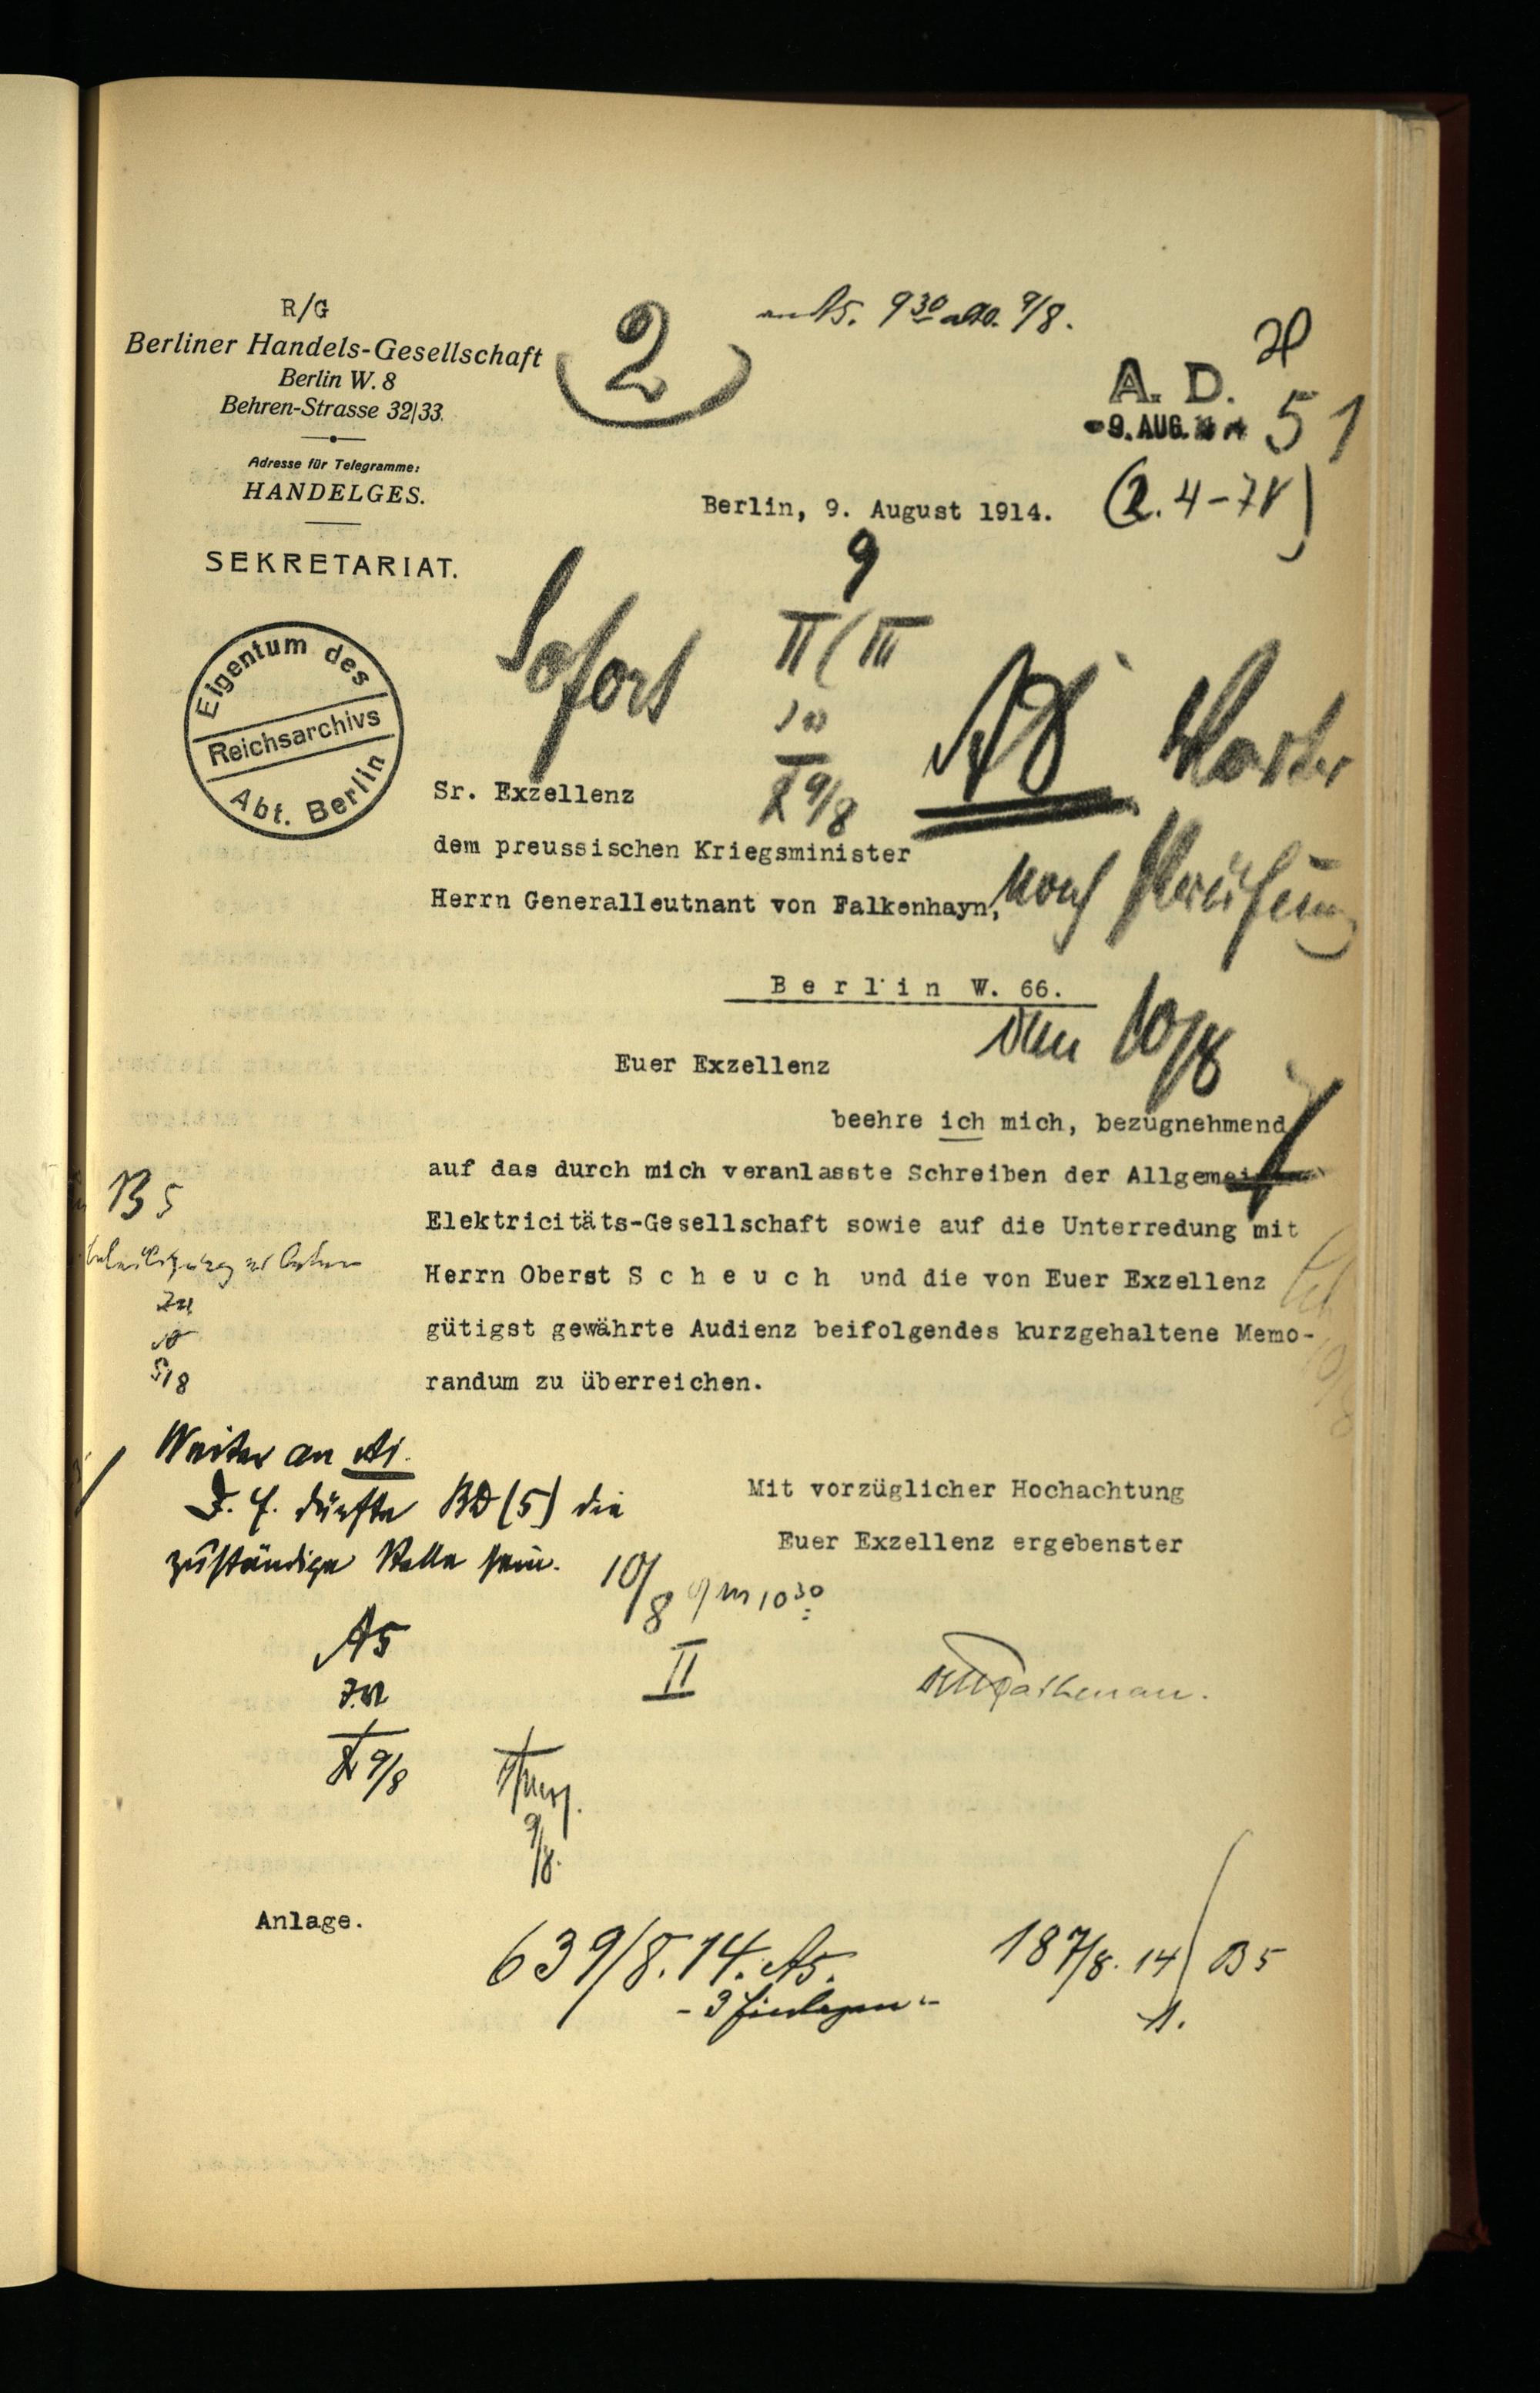 R/G
Berliner Handels-Gesellschaft
Berlin W. 8
Behren-Strasse 32/33.
Adresse für Telegramme:
HANDELGES.
SEKRETARIAT.
2
9 30 9/8.
A. D.
9. AUG.
51
Berlin, 9. August 1914.
(2. 4-78)
9
Sofort
II/III
Eigentum des
Reichsarchivs
Abt. Berlin
9/8
Sr. Exzellenz
dem preussischen Kriegsminister
Herrn Generalleutnant von Falkenhayn,
nach Prüfung
Berlin W. 66.
10/8
Euer Exzellenz
beehre ich mich, bezugnehmend
auf das durch mich veranlasste Schreiben der Allgemeinen
Elektricitäts-Gesellschaft sowie auf die Unterredung mit
Herrn Oberst Scheuch und die von Euer Exzellenz
gütigst gewährte Audienz beifolgendes kurzgehaltene Memo-
randum zu überreichen.
B 5
Weiter an
dürfte BD (5) die
zuständige Stelle sein.
Mit vorzüglicher Hochachtung
Euer Exzellenz ergebenster
10/8
10 30
A5
II
Rathenau.
9/8
9/8.
Anlage.
639/8.14. A5.
- 3 Einlagen -
187/8. 14 B5